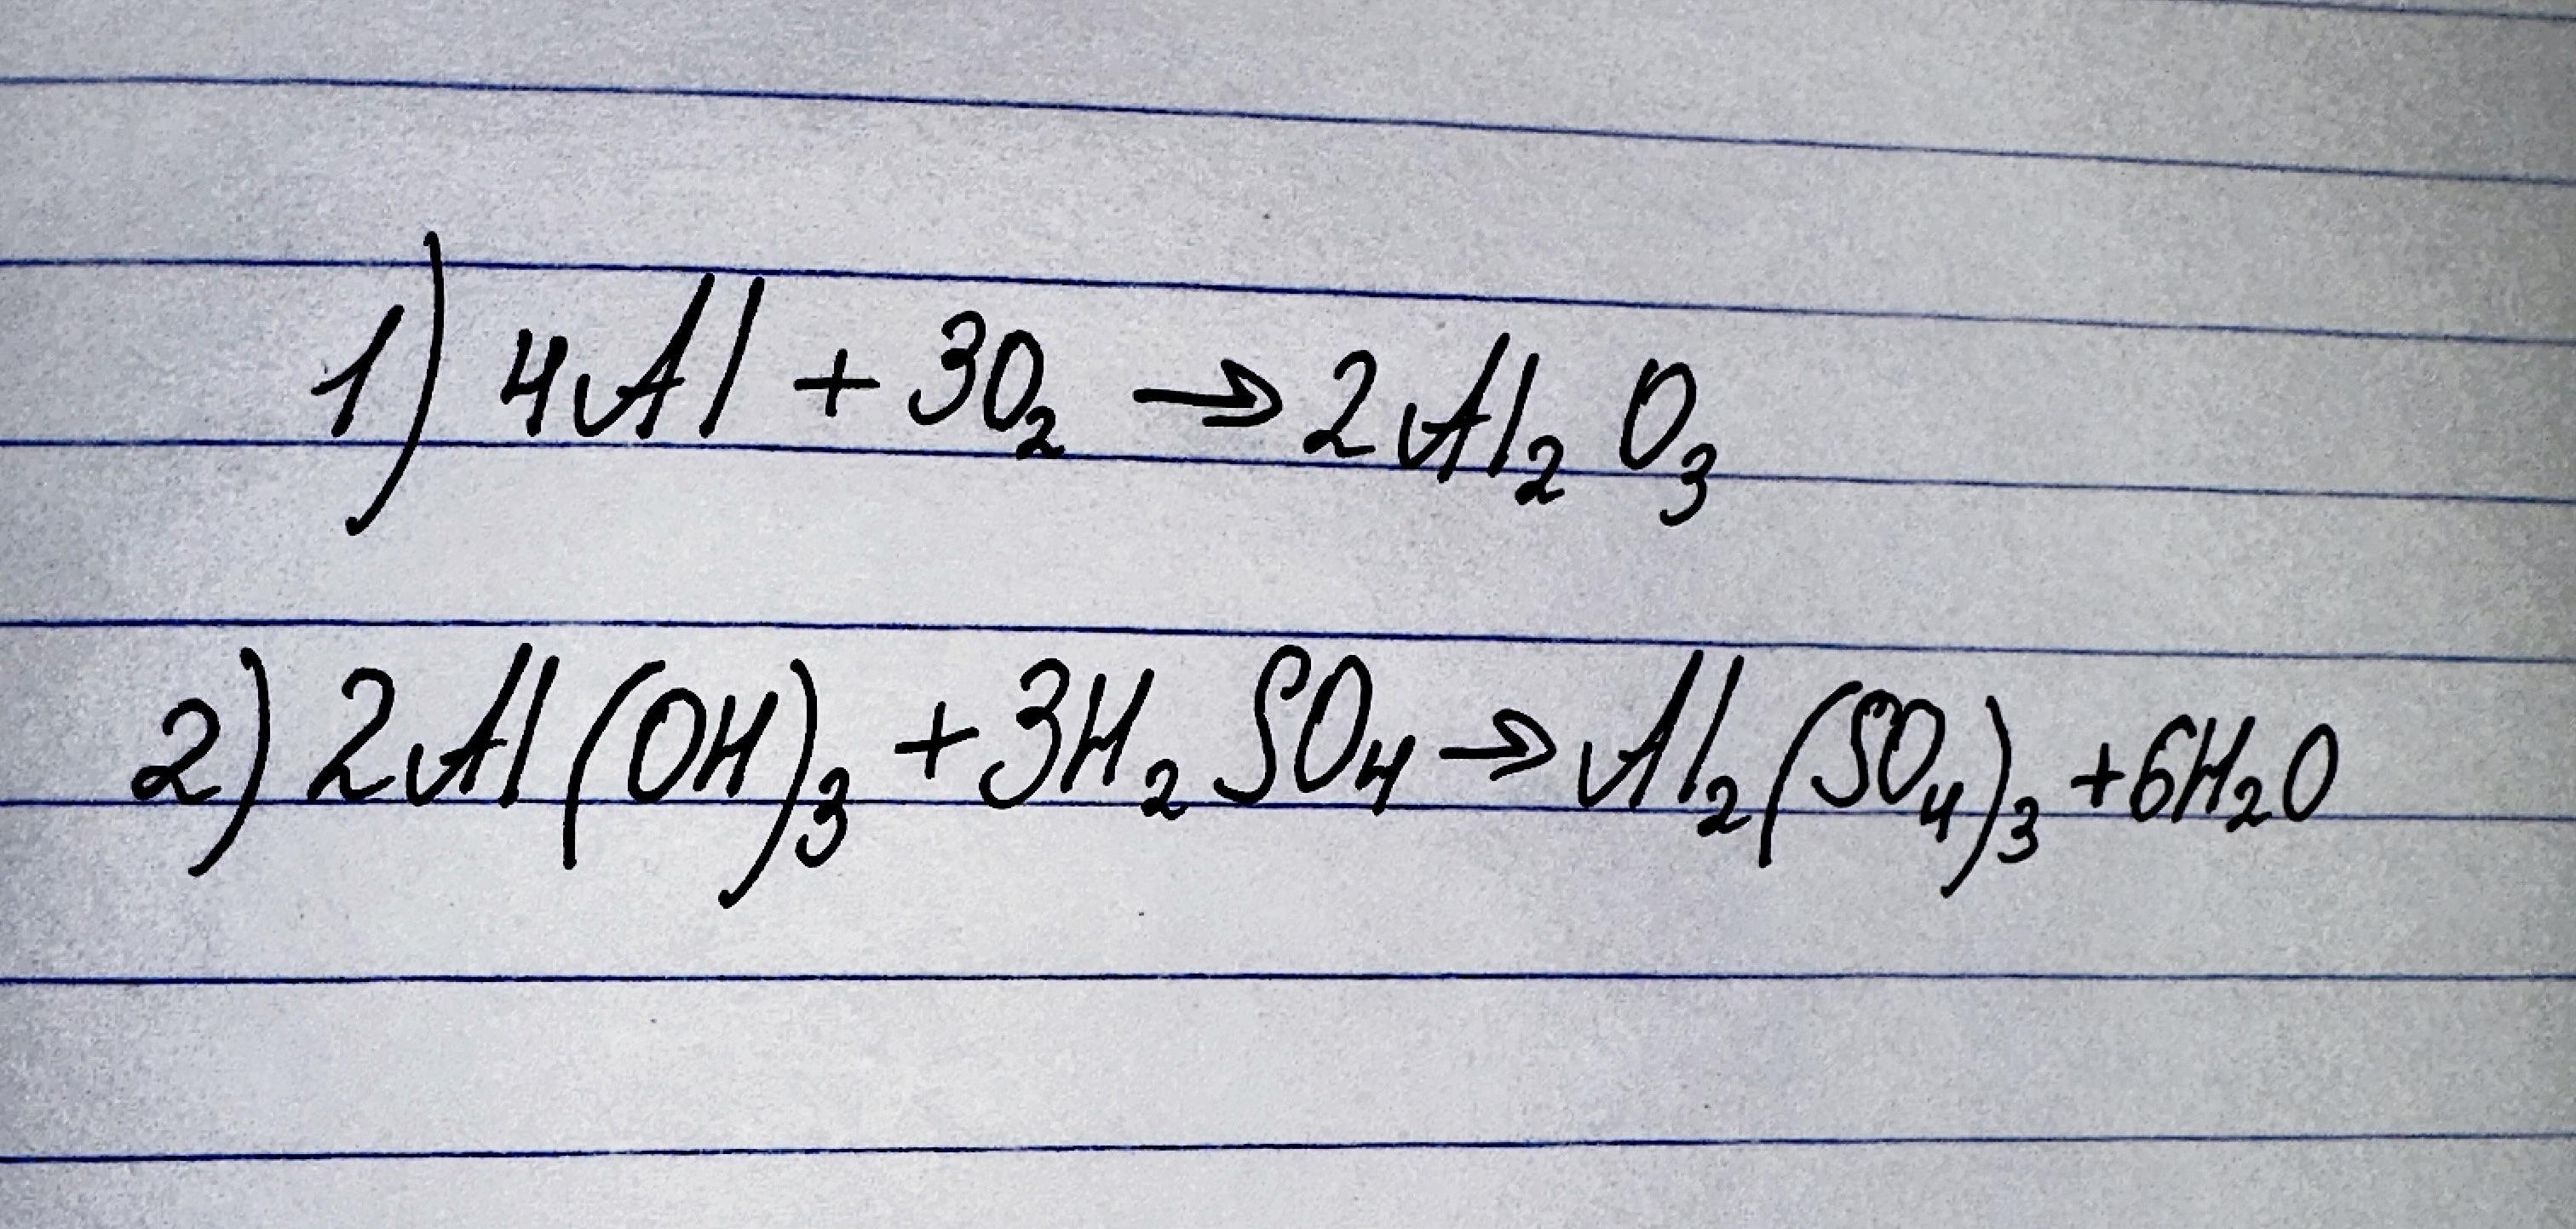 1) 4Al + 3O₂ → 2Al₂O₃
2) 2Al(OH)₃ + 3H₂SO₄ → Al₂(SO₄)₃ + 6H₂O